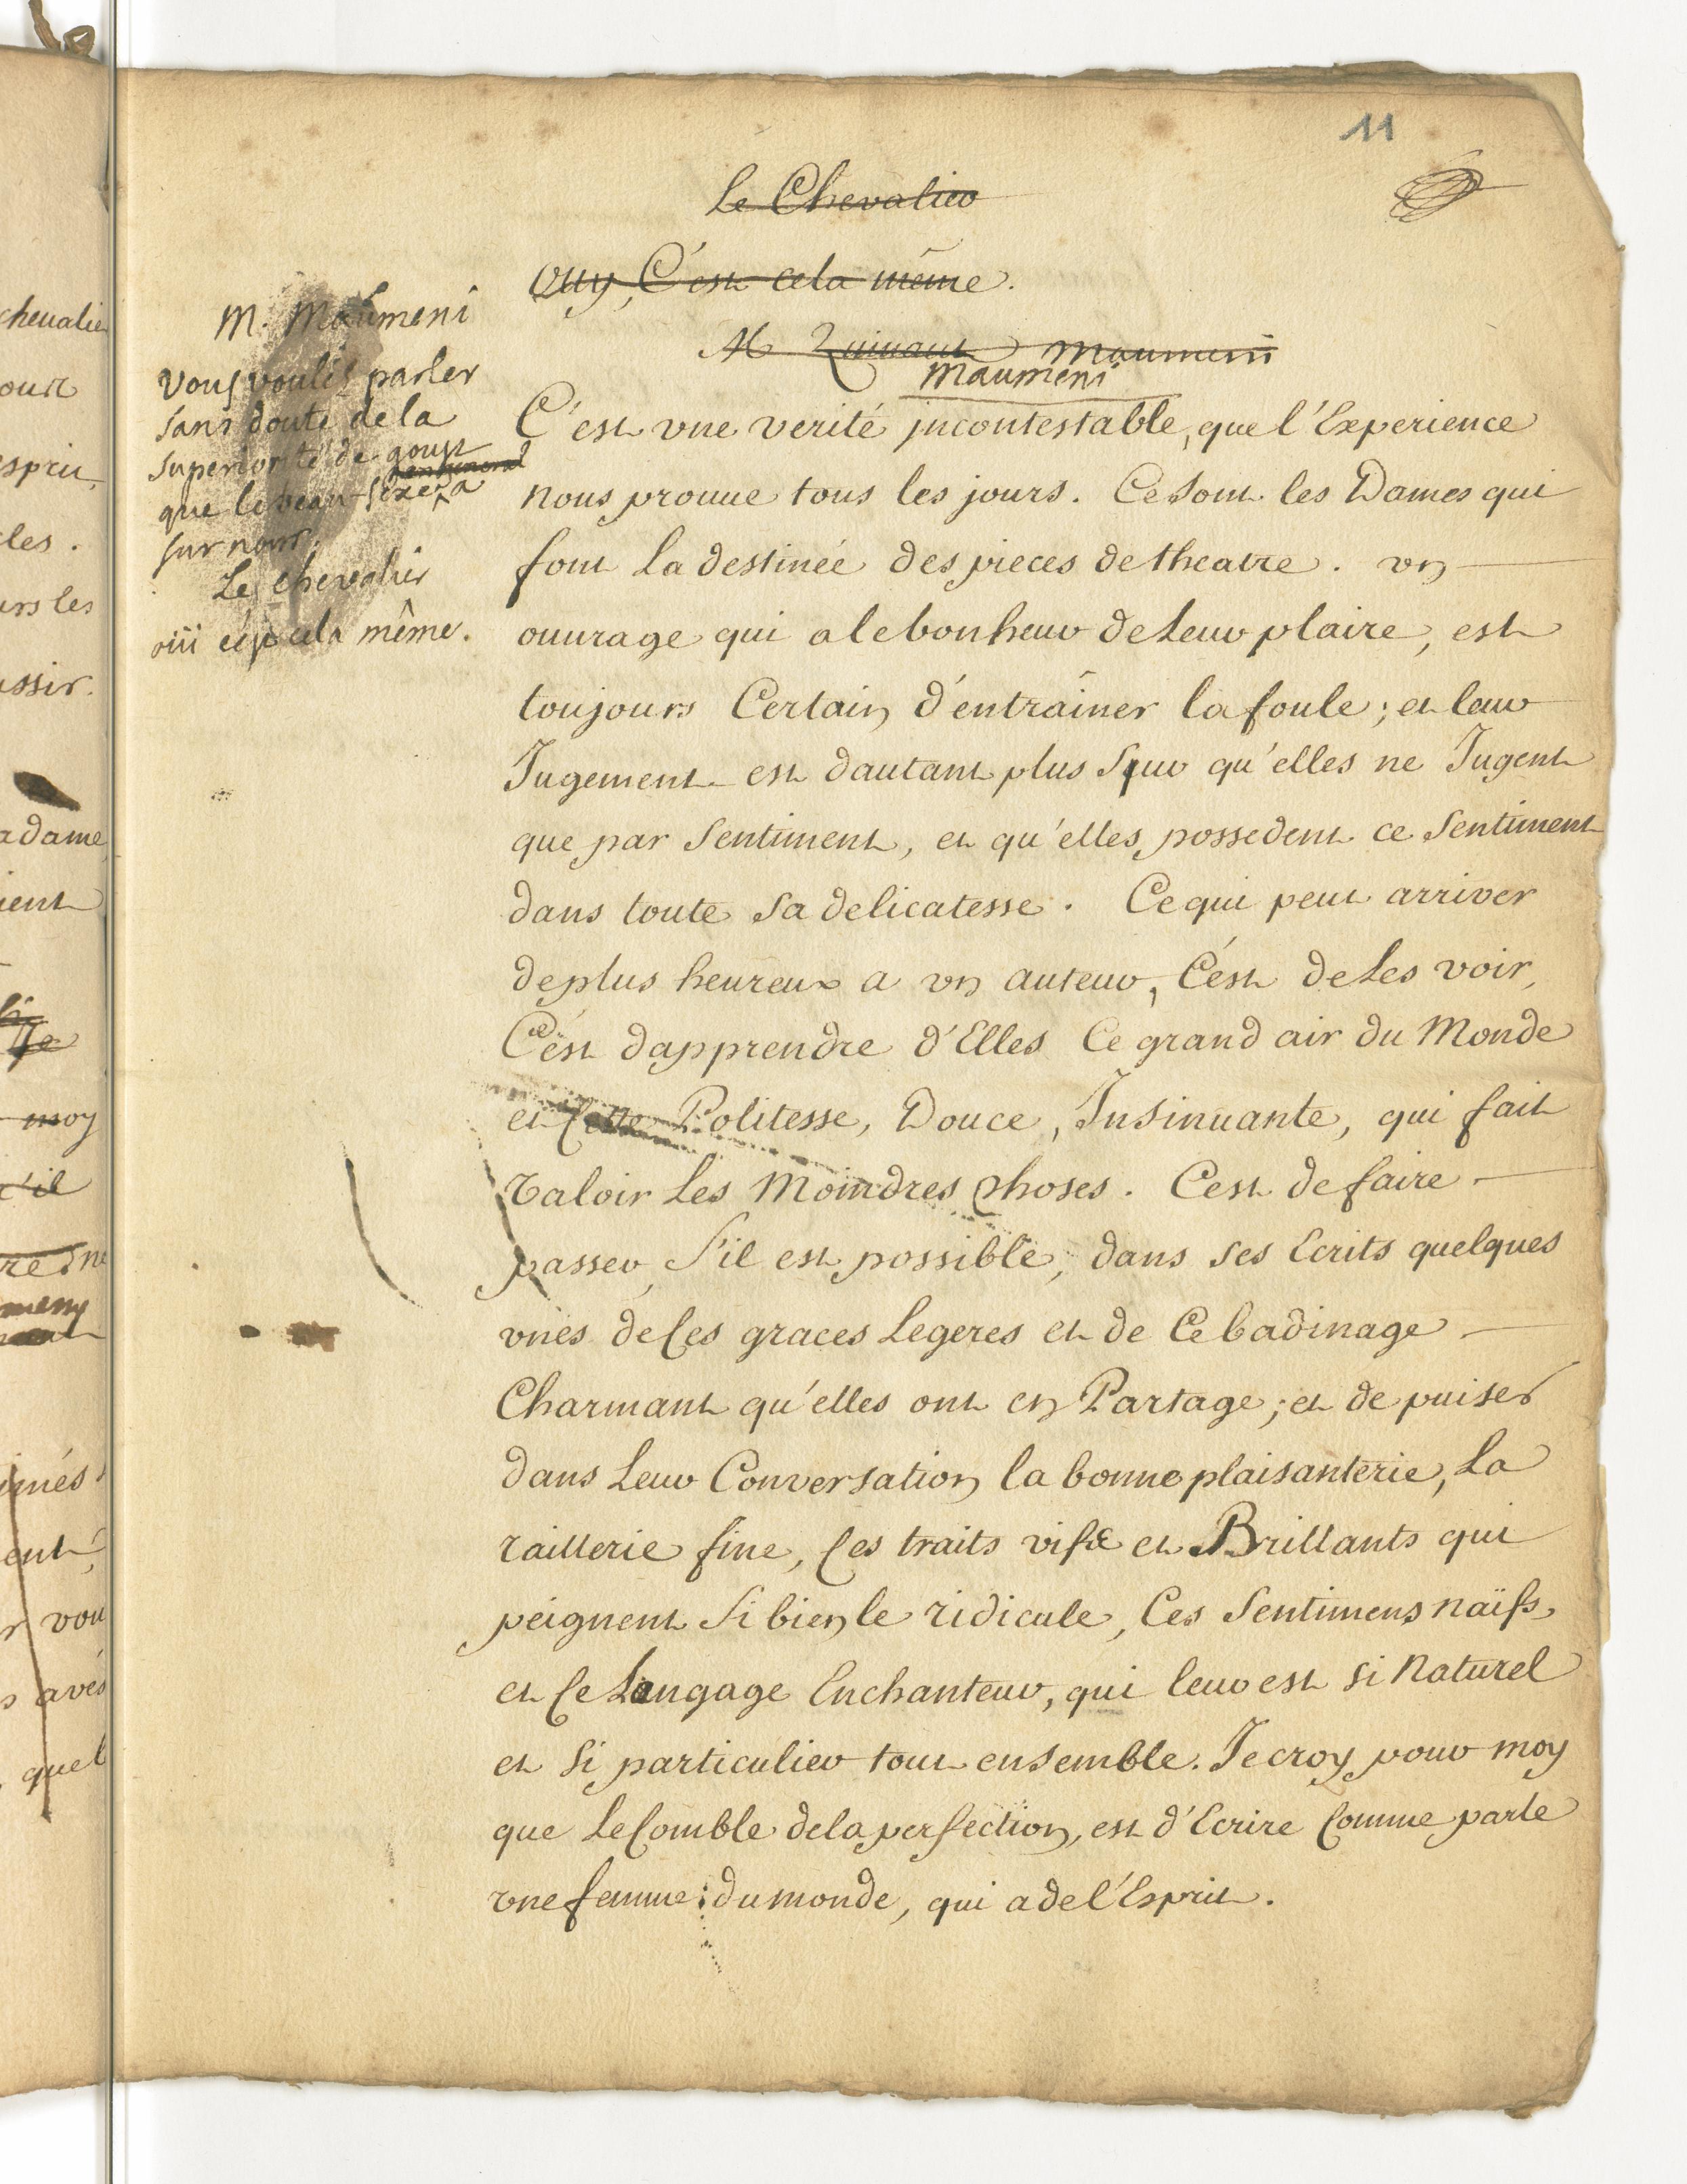 11
Le Chevalier
Ouy, C'est cela même.
M Quinaut Maumeni
Maumeni
M. Maumeni
Vous voulés parler
sans doute de la
superiorité de goust
sentiment
que le beau sexe a
sur nous.
Le chevalier
oüi c'est cela même.
C'est vne verité jncontestable, que l'Experience
nous prouue tous les jours. Ce sont les Dames qui
font la destinée des pieces de theatre. vn
ouurage qui a le bonheur de Leur plaire, est
toujours Certain d'entraîner la foule; et leur
Jugement est dautant plus Sur qu'elles ne Jugent
que par Sentiment, et qu'elles possedent ce Sentiment
dans toute Sa delicatesse. Ce qui peut arriver
de plus heureux a vn auteur, C'est de Les voir,
C'est dapprendre d'Elles Ce grand air du Monde
et Cette Politesse, Douce, Insinuante, qui fait
Valoir Les Moindres Choses. C'est de faire
passer, S'il est possible, dans ses Ecrits quelques
vnes de Ces graces Legeres et de Ce badinage
Charmant qu'elles ont en Partage; et de puiser
dans Leur Conversation la bonne plaisanterie, La
raillerie fine, Ces traits vifs et Brillants qui
peignent Si bien le ridicule, Ces Sentimens naïfs
et Ce Langage Enchanteur, qui leur est si Naturel
et Si particulier tout ensemble. Je croy pour moy
que Le Comble de la perfection, est d'Ecrire Comme parle
vne femme du monde, qui a de l'Esprit.